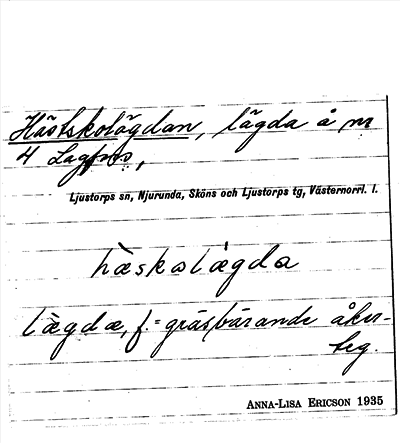 Hästskolägdan, lägda å nr
4 Lagfors,
Ljustorps sn, Njurunda, Sköns och Ljustorps tg, Västernorrl. l.
hàskolàgda
lægdæ, f. = gräsbärande åker-
teg.
ANNA-LISA ERICSON 1935